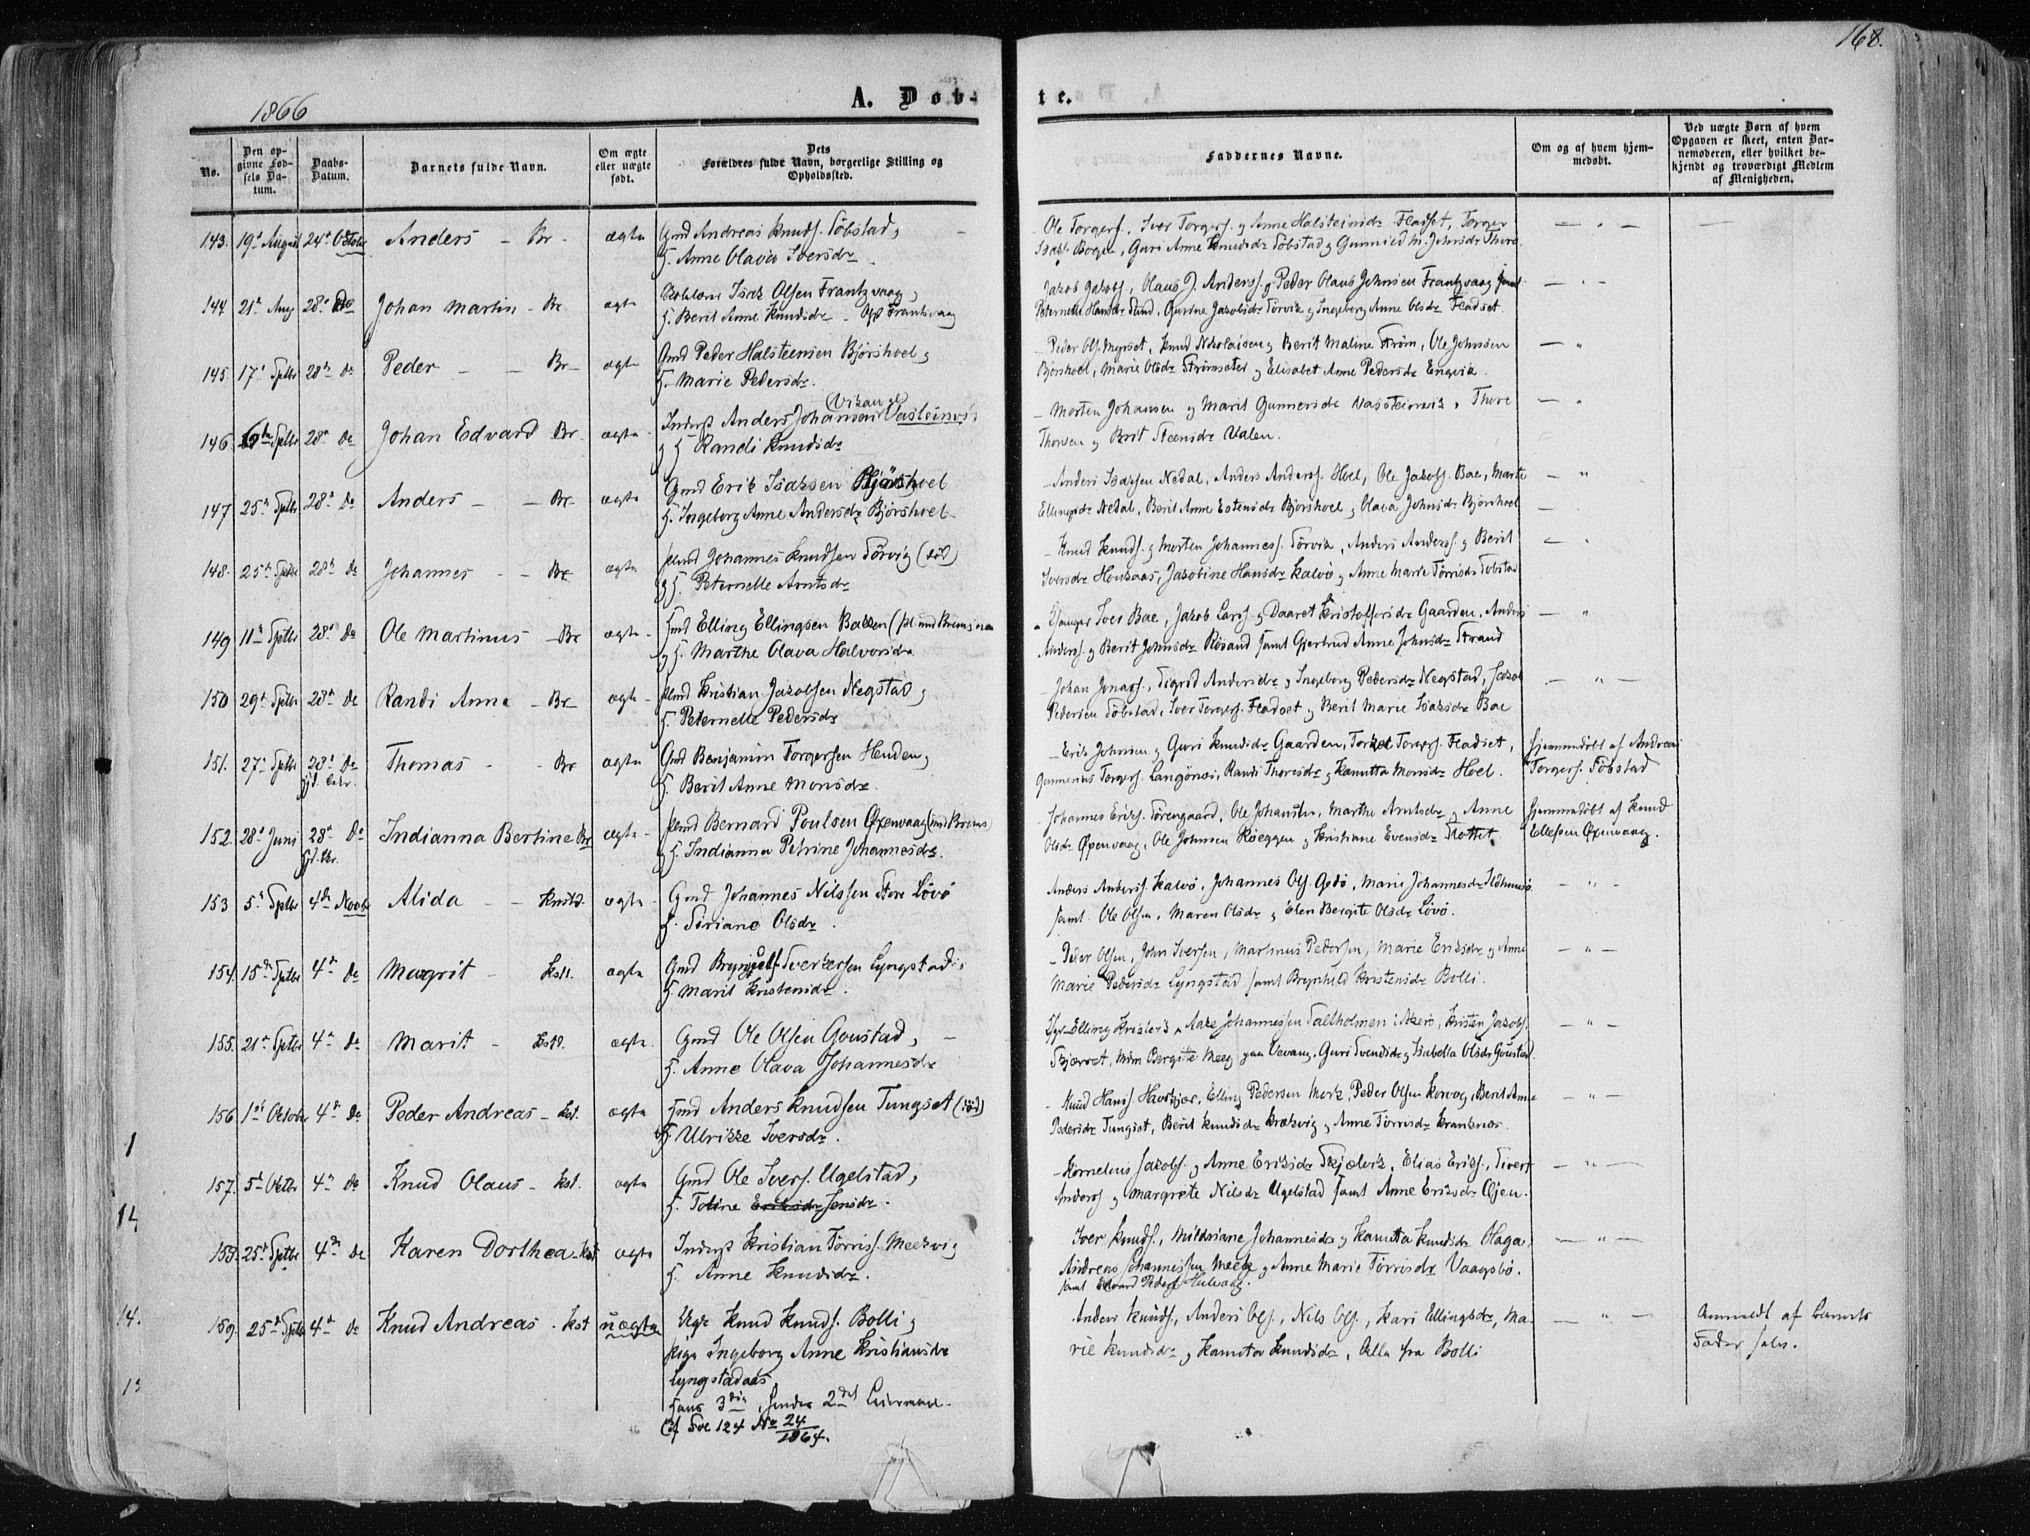 1866
A. Døb-
te.
168.
No.
Den op-
givne Fød-
sels Da-
tum.
Daabs-
Datum.
Barnets fulde Navn.
Om ægte
eller uægte
født.
Dets
Forældres fulde Navn, borgerlige Stilling og
Opholdssted.
Faddernes Navne.
Om og af hvem hjem-
medøbt.
Ved uægte Børn af hvem
Opgaven er skeet, enten Bar-
nemoderen, eller hvilket be-
kjendt og troværdigt Medlem
af Menigheden.
143. 19de August 24de Octobr Anders - Br - ægte Gmd Andreas Knuds. Tøbstad,
H. Anne Olava Iversdr
Ole Torgers., Iver Torgers. og Anne Halsteinsdr Fladset, Torger
Bogen, Guri Anne Knudsdr Tøbstad
144 21de Aug 28de Do Johan Martin - Br. ægte Isak Olsen Frantzvaag,
H. Berit Anne Knudsdr
Jakob Jakobs., Olaus J. Anders. og Peder Olaus Johnsen Frantzvaag samt
Peternelle Hansdr Sund, Jakobsdr Tørvik og Ingeborg Anne Olsdr Fladset.
145. 17de Septbr 28de do Peder - - Br - ægte Gmd Peder Halsteensen Bjørshoel og
H. Marie Pedersdr.
Peder Ols. Myrset, Knud Nikolaisen og Berit Maline Strøm, Ole Johnsen
Bjørshoel, Marie Olsdr Strømsæter og Elisabet Anne Pedersdr Engvik.
146 Septbr 28de do Johan Edvard Br. ægte Inderst Anders Johansen
og H. Randi Knudsdr
Morten Johansen og Marit Gunnersdr Vassteinvik, Thore
Thoresen og Brit Steensdr Valen.
147 25de Septbr 28de do Anders - - Br - ægte Gmd Erik Isaksen Bjørshoel
H. Ingeborg Anne Andersdr Bjørshoel
Anders Isaksen Nedal, Anders Anders. Hoel, Ole Jakobs. Bae, Marte
Ellingsdr Nedal, Berit Anne Estensdr Bjørshoel og Olava Johnsdr Bjørshoel
148. 25de Septbr 28de do Johannes - - Br ægte Plmd Johannes Knudsen Tørvig (død)
og H. Peternelle Arntsdr
Knud Knuds. og Morten Johannes. Tørvik, Anders Anders. og Berit
Iversdr Houkaas, Jakobine Hansdr Kalvø og Anne Marie Tørrisdr Tøbstad
149 11de Septbr 28de do Ole Martinus - Br ægte - Elling Ellingsen Bakken
og H. Marthe Olava Halvorsdr
Iver Bae, Jakob Lars. og Daaret Kristoffersdr Gaarden, Anders
Anders. og Berit Johnsdr Røsand samt Gjertrud Anne Johnsdr Strand
150 29de Septbr 28de do Randi Anne - Br - ægte - Plmd Kristian Jakobsen Negstad og
H. Peternelle Pedersdr
Johan Jonas., Sigrid Andersdr og Ingeborg Pedersdr Negstad, Jakob
Pedersen Tøbstad, Iver Torgers. Fladset og Berit Marie Isaksdr Bae
151. 27de Septbr 28de do Thomas - - Br ægte Gmd Benjamin Torgersen Henden og
H. Berit Anne Monsdr.
Erik Johnsen og Guri Knudsdr Gaarden, Torkel Torgers. Fladset,
Gunnerius Torgers. Langønes, Randi Thoresdr og Kanutta Monsdr Hoel.
hjemmedøbt af Andreas
Torgers. Tøbstad
152. 28de Juni 28de do Indianna Bertine Br ægte - Plmd Bernard Poulsen Øxenvaag
og H. Indianna Petrine Johannesdr.
Johannes Eriks. Sørengaard, Ole Johansen, Marthe Arntsdr og Anne
Olsdr Øxenvaag, Ole Johnsen Røeggen og Kristiane Evensdr Slottet.
hjemmedøbt af Knud
Ellefsen Øxenvaag.
153 5te Septbr 4de Novbr Alida - - Knstd. ægte - Gmd Johannes Nilssen Store Løvø
H. Siriane Olsdr.
Anders Anders. Kalvø, Johannes Ols. Gedø, Marie Johannesdr
samt Ole Olsen, Maren Olsdr og Elen Bergite Olsdr Løvø.
154. 15de Septbr 4de do Margrit - Kst. ægte Gmd Brynjulf Sverkersen Lyngstad,
H. Marit Kristensdr.
Peder Olsen, John Iversen, Martinus Pedersen, Marie Eriksdr og Anne
Marie Pedersdr Lyngstad samt Brynhild Kristensdr Bolli.
155. 21de Septbr 4de do Marit - Kst. ægte. Gmd Ole Olsen Goustad,
H. Anne Olava Johannesdr
Elling Aake Johannessen Saltholmen i Akerø, Kristen Jakobs.
Bergite Meeg paa Vevang, Guri Svendsdr og Isabella Olsdr Goustad.
156 1ste October 4de do Peder Andreas - Kst. ægte Anders Knudsen Tungset (død)
og H. Ulrikke Iversdr.
Knud Hans. Havskjær, Elling Pedersen Mork, Peder Olsen Korvog, Berit Anne
Pedersdr Tungset, Berit Knudsdr Krækvig og Anne Tørrisdr Kranknæs.
157. 5te Octbr 4de do Knud Olaus - Kst. ægte Gmd Ole Ivers. Ugelstad,
H. Toline Eriksdr Jensdr.
Kornelius Jakobs. og Anne Eriksdr Skjølvik, Elias Eriks., Siver
Anders. og Margrete Nilsdr Ugelstad samt Anne Eriksdr Øjen.
158. 25de Septbr 4de do Karen Dorthea - Kst ægte Inderst Kristian Tørris. Meekvig
H. Anne Knudsdr.
Iver Knuds., Mildriane Johannesdr og Kanutta Knudsdr Olaga,
Andreas Johannessen Meek og Anne Marie Tørrisdr Vaagsbø.
samt Edvard Peders. Hulvaag.
159. 25de Septbr 4de do Knud Andreas - Kst uægte Ugk Knud Knuds. Bolli og
Pige Ingeborg Anne Kristiansdr
Lyngstadaas
Hans 3die, hendes 2det Leiermaal.
Cf Soe 124 No 24/1864.
Anders Knuds., Anders Ols., Nils Ols., Kari Ellingsdr, Ma-
rie Knudsdr og Kanutta Knudsdr, Alle fra Bolli
Anmeldt af Barnets
Fader selv.
1
14
14.